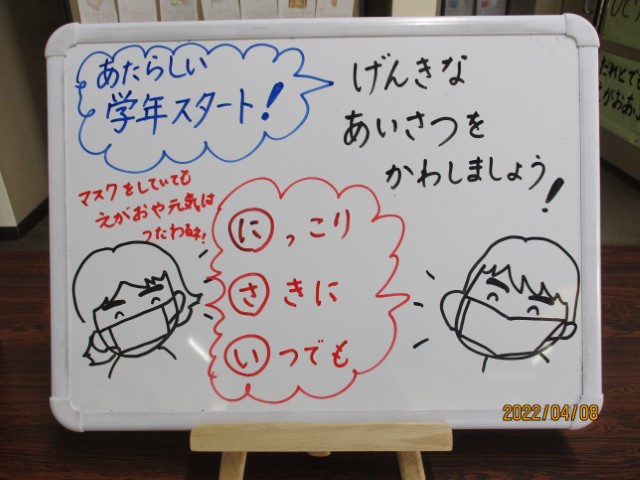 あたらしい
学年スタート!
げんきな
あいさつを
かわしましょう!
マスクをしていても
えがおや元気は
つたわるネ!
にっこり
さきに
いつでも
2022/04/08